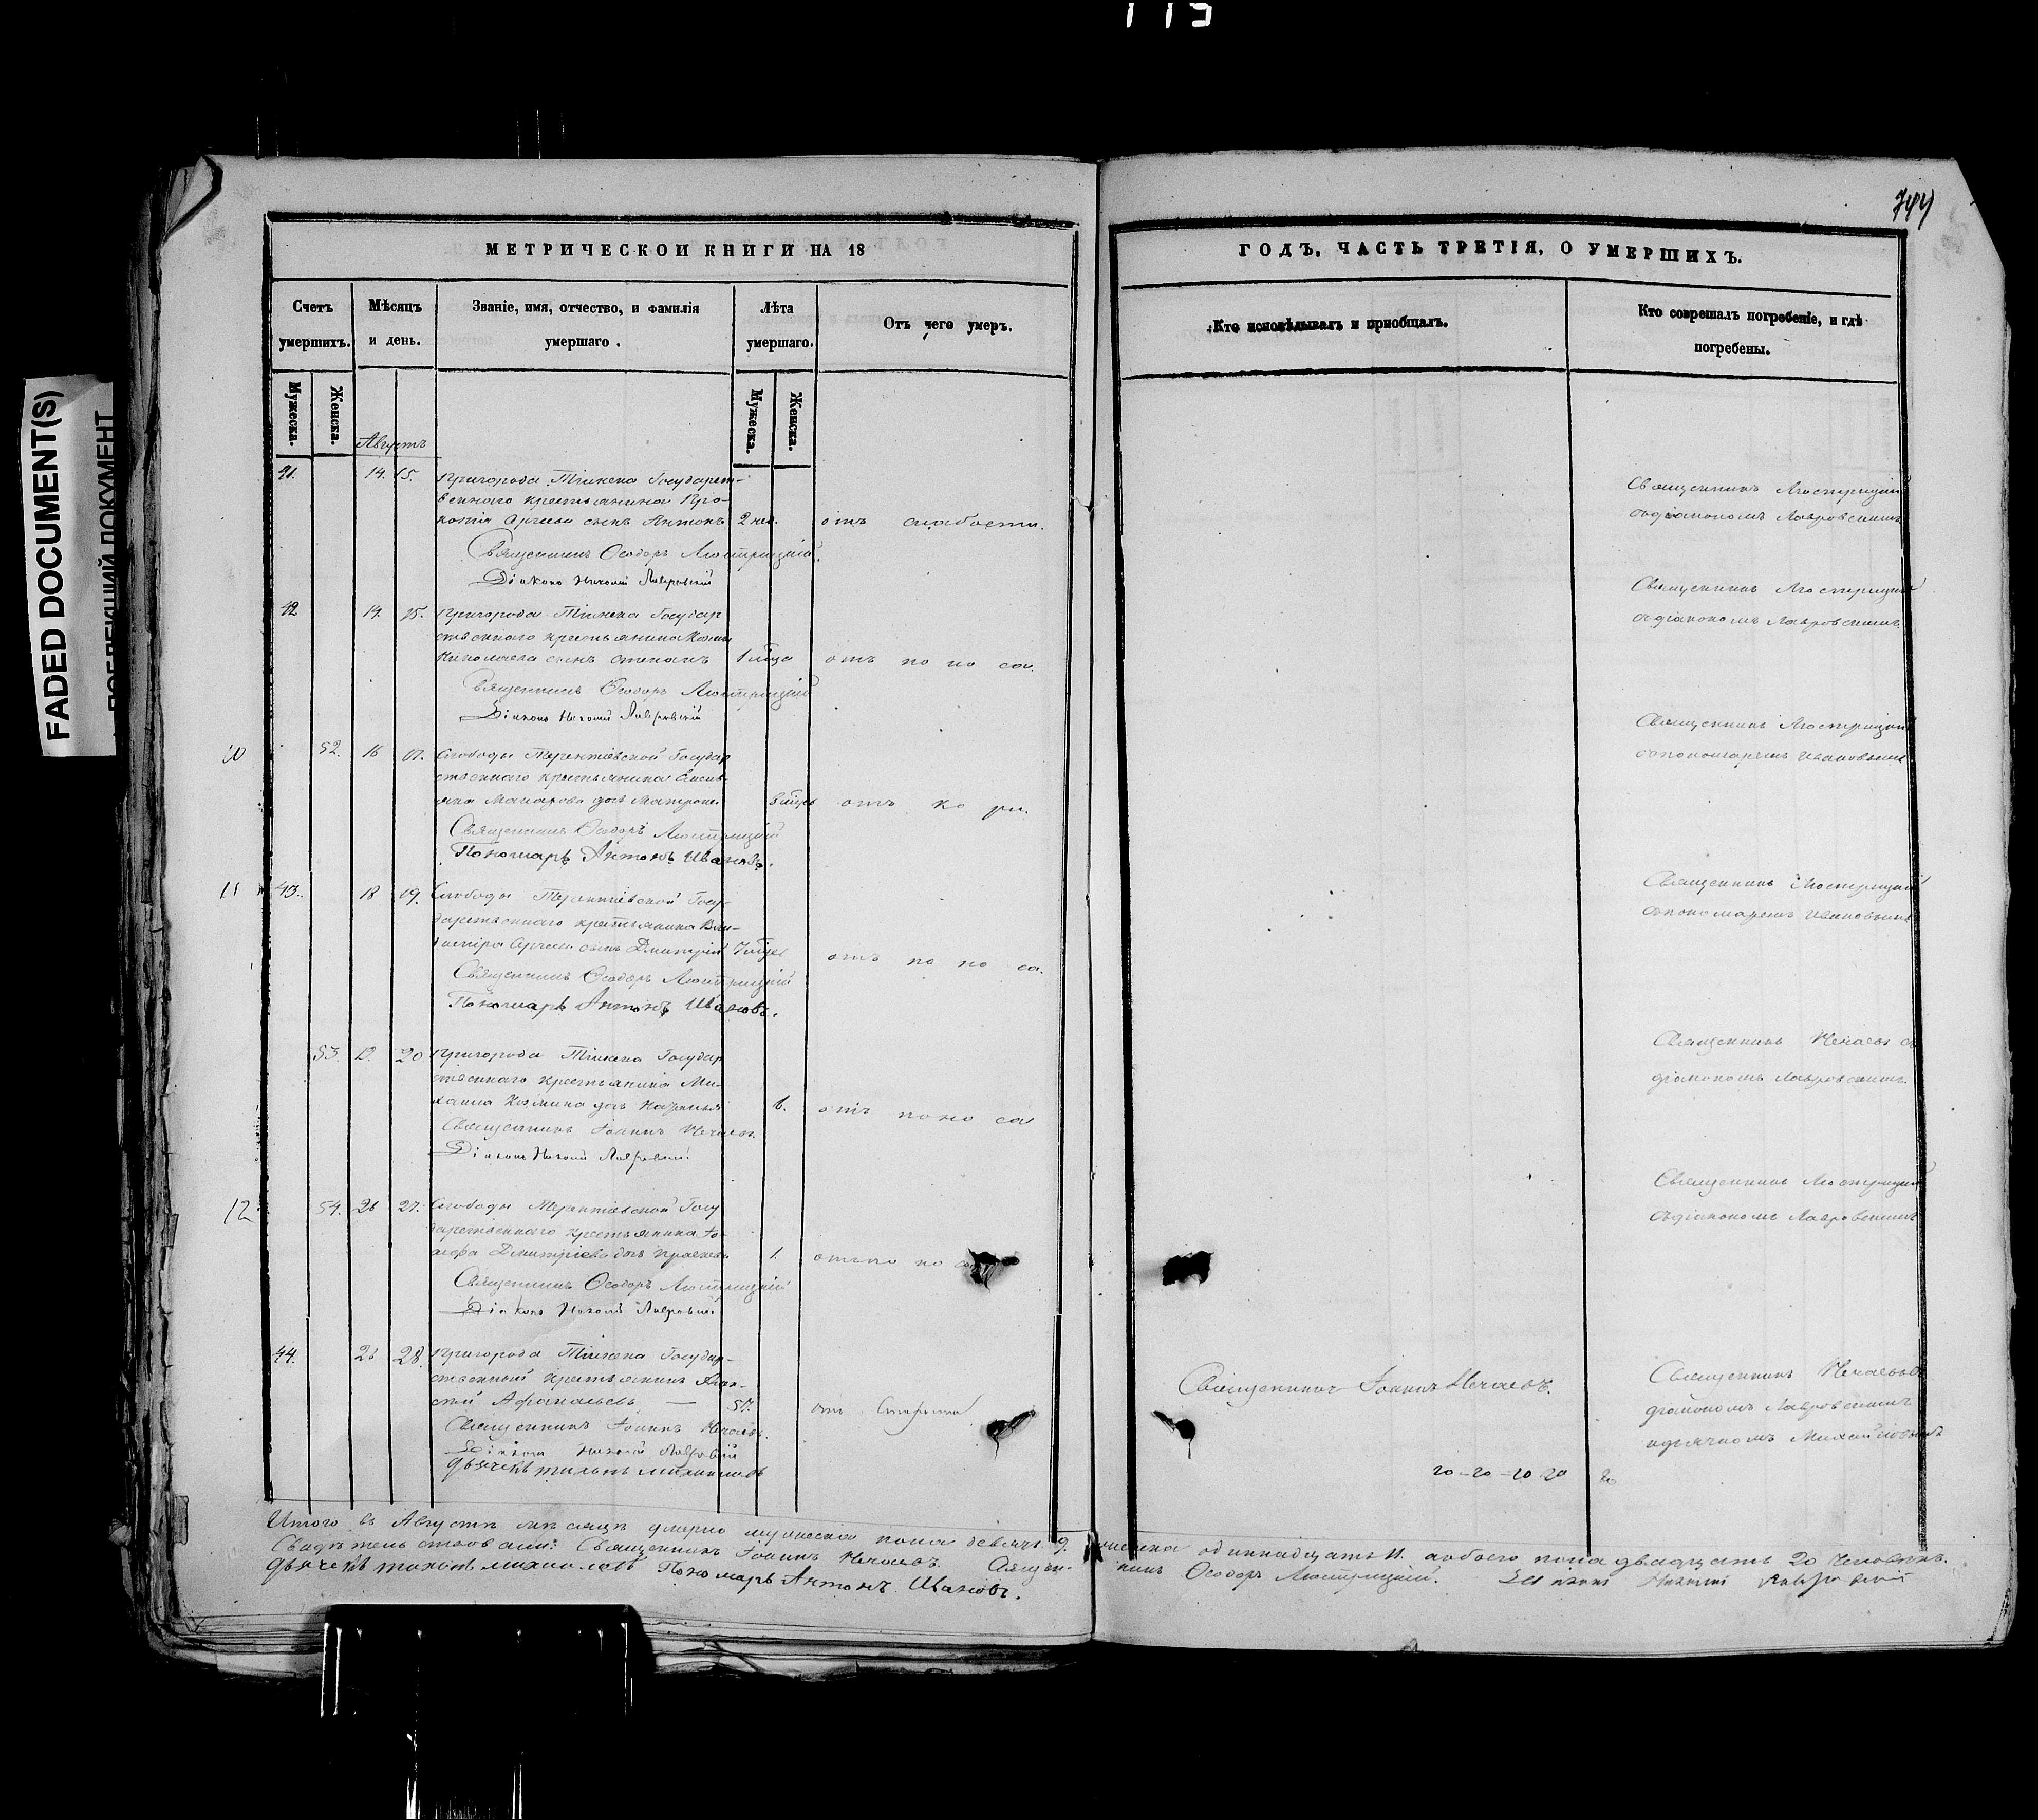 115
744
FADED DOCUMENT(S)
МЕТРИЧЕСКОЙ КНИГИ НА 18
ГОДЪ, ЧАСТЬ ТРЕТІЯ, О УМЕРШИХЪ.
Счетъ умершихъ.
Мѣсяцъ и день.
Званіе, имя, отчество, и фамилія умершаго.
Лѣта умершаго.
Отъ чего умеръ.
Кто исповѣдывалъ и пріобщалъ.
Кто совершалъ погребеніе, и гдѣ погребены.
Мужеска.
Женска.
Мужеска.
Женска.
Августъ
41. 14. 15. Пригорода Тіинска Государст-
веннаго крестьянина Про-
копія сынъ Антонъ 2 нед. отъ слабости.
Священникъ Ѳеодоръ Люстрицкій.
Діаконъ Николай Лавровскій
Священникъ Люстрицкій
съ діакономъ Лавровскимъ
42 14. 15. Пригорода Тіинска Государ
ственнаго крестьянина Козмы
Николаева сынъ Степанъ 1 мѣсяца отъ поноса.
Священникъ Ѳеодоръ Люстрицкій
Діаконъ Николай Лавровскій
Священникъ Люстрицкій
съ діакономъ Лавровскимъ.
10 52. 16 17. Слободы Терентіевской Государ
ственнаго крестьянина
Макарова дочь Матрона отъ кори.
Священникъ Ѳеодоръ Люстрицкій
Пономарь Антонъ Ивановъ.
Священникъ Люстрицкій
съ пономаремъ Ивановымъ
11 43. 18 19. Слободы Терентіевской Госу-
дарственнаго крестьянина Вла-
диміра сынъ Дмитрій отъ поноса.
Священникъ Ѳеодоръ Люстрицкій
Пономарь Антонъ Ивановъ.
Священникъ Люстрицкій
съ пономаремъ Ивановымъ
53. 20 Пригорода Тіинска Государ
ственнаго крестьянина Ми-
хаила Козмина дочь отъ поноса
Священникъ Іоаннъ Нечаевъ.
Діаконъ Николай Лавровскій.
Священникъ Нечаевъ съ
діакономъ Лавровскимъ.
12 54. 26 27. Слободы Терентіевской Госу
дарственнаго крестьянина Іо-
сифа Дмитріева дочь 1. отъ поноса
Священникъ Ѳеодоръ Люстрицкій
Діаконъ Николай Лавровскій
Священникъ Люстрицкій
съ діакономъ Лавровскимъ
44. 26 28. Пригорода Тіинска Государ-
ственный крестьянинъ
Афанасьевъ — отъ
Священникъ Іоаннъ Нечаевъ.
Діаконъ Николай Лавровскій
Дьячекъ Михайловъ
Священникъ Іоаннъ Нечаевъ.
Священникъ Нечаевъ съ
діакономъ Лавровскимъ
и дьячкомъ Михайловымъ
20 - 20 - 20 20
Итого въ Августѣ мѣсяцѣ умерло мужеска пола девять 9. женска одиннадцать 11. обоего пола двадцать 20 человѣкъ.
Свидѣтельствовали: Священникъ Іоаннъ Нечаевъ. Священ-
никъ Ѳеодоръ Люстрицкій. Діаконъ Николай Лавровскій
Дьячекъ Михайловъ Пономарь Антонъ Ивановъ.